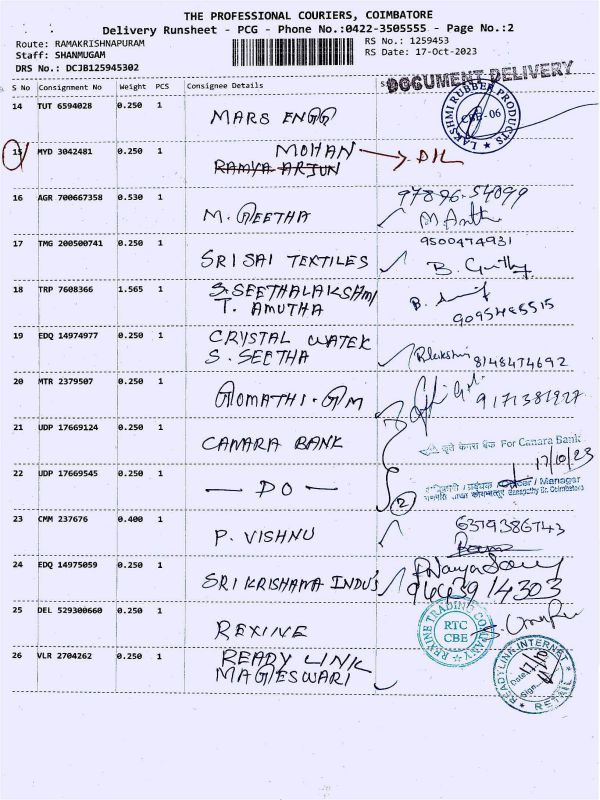 THE PROFESSIONAL COURIERS, COIMBATORE
Delivery Runsheet - PCG - Phone No.:0422-3505555 - Page No.:2
Route: RAMAKRISHNAPURAM
RS No.: 1259453
Staff: SHANMUGAM
RS Date: 17-Oct-2023
DRS No.: DCJB125945302
DOCUMENT DELIVERY
S No Consignment No Weight PCS Consignee Details
14 TUT 6594028 0.250 1 MARS ENGG
LAKSHMI RUBBER PRODUCTS CBE-06
15 MYD 3042481 0.250 1 MOHAN → D/L
RAMYA ARJUN
16 AGR 700667358 0.530 1 M. GEETHA
97896-54099
17 TMG 200500741 0.250 1 SRI SAI TEXTILES
9500474931
18 TRP 7608366 1.565 1 S. SEETHALAKSHMI
T. AMUTHA
9095485515
19 EDQ 14974977 0.250 1 CRYSTAL WATER
S. SEETHA
8148474692
20 MTR 2379507 0.250 1 GOMATHI. GM
9171381827
21 UDP 17669124 0.250 1 CANARA BANK
कृते केनरा बैंक For Canara Bank
17/10/23
22 UDP 17669545 0.250 1 — DO —
Manager
2
23 CMM 237676 0.400 1 P. VISHNU
6379386743
24 EDQ 14975059 0.250 1 SRI KRISHANA INDUS
25 DEL 529300660 0.250 1 REXINE
REXINE TRADING COMPANY RTC CBE
26 VLR 2704262 0.250 1 READY LINK
MAGIESWARI
READYLINK INTERNET RETAIL
Date
Sign